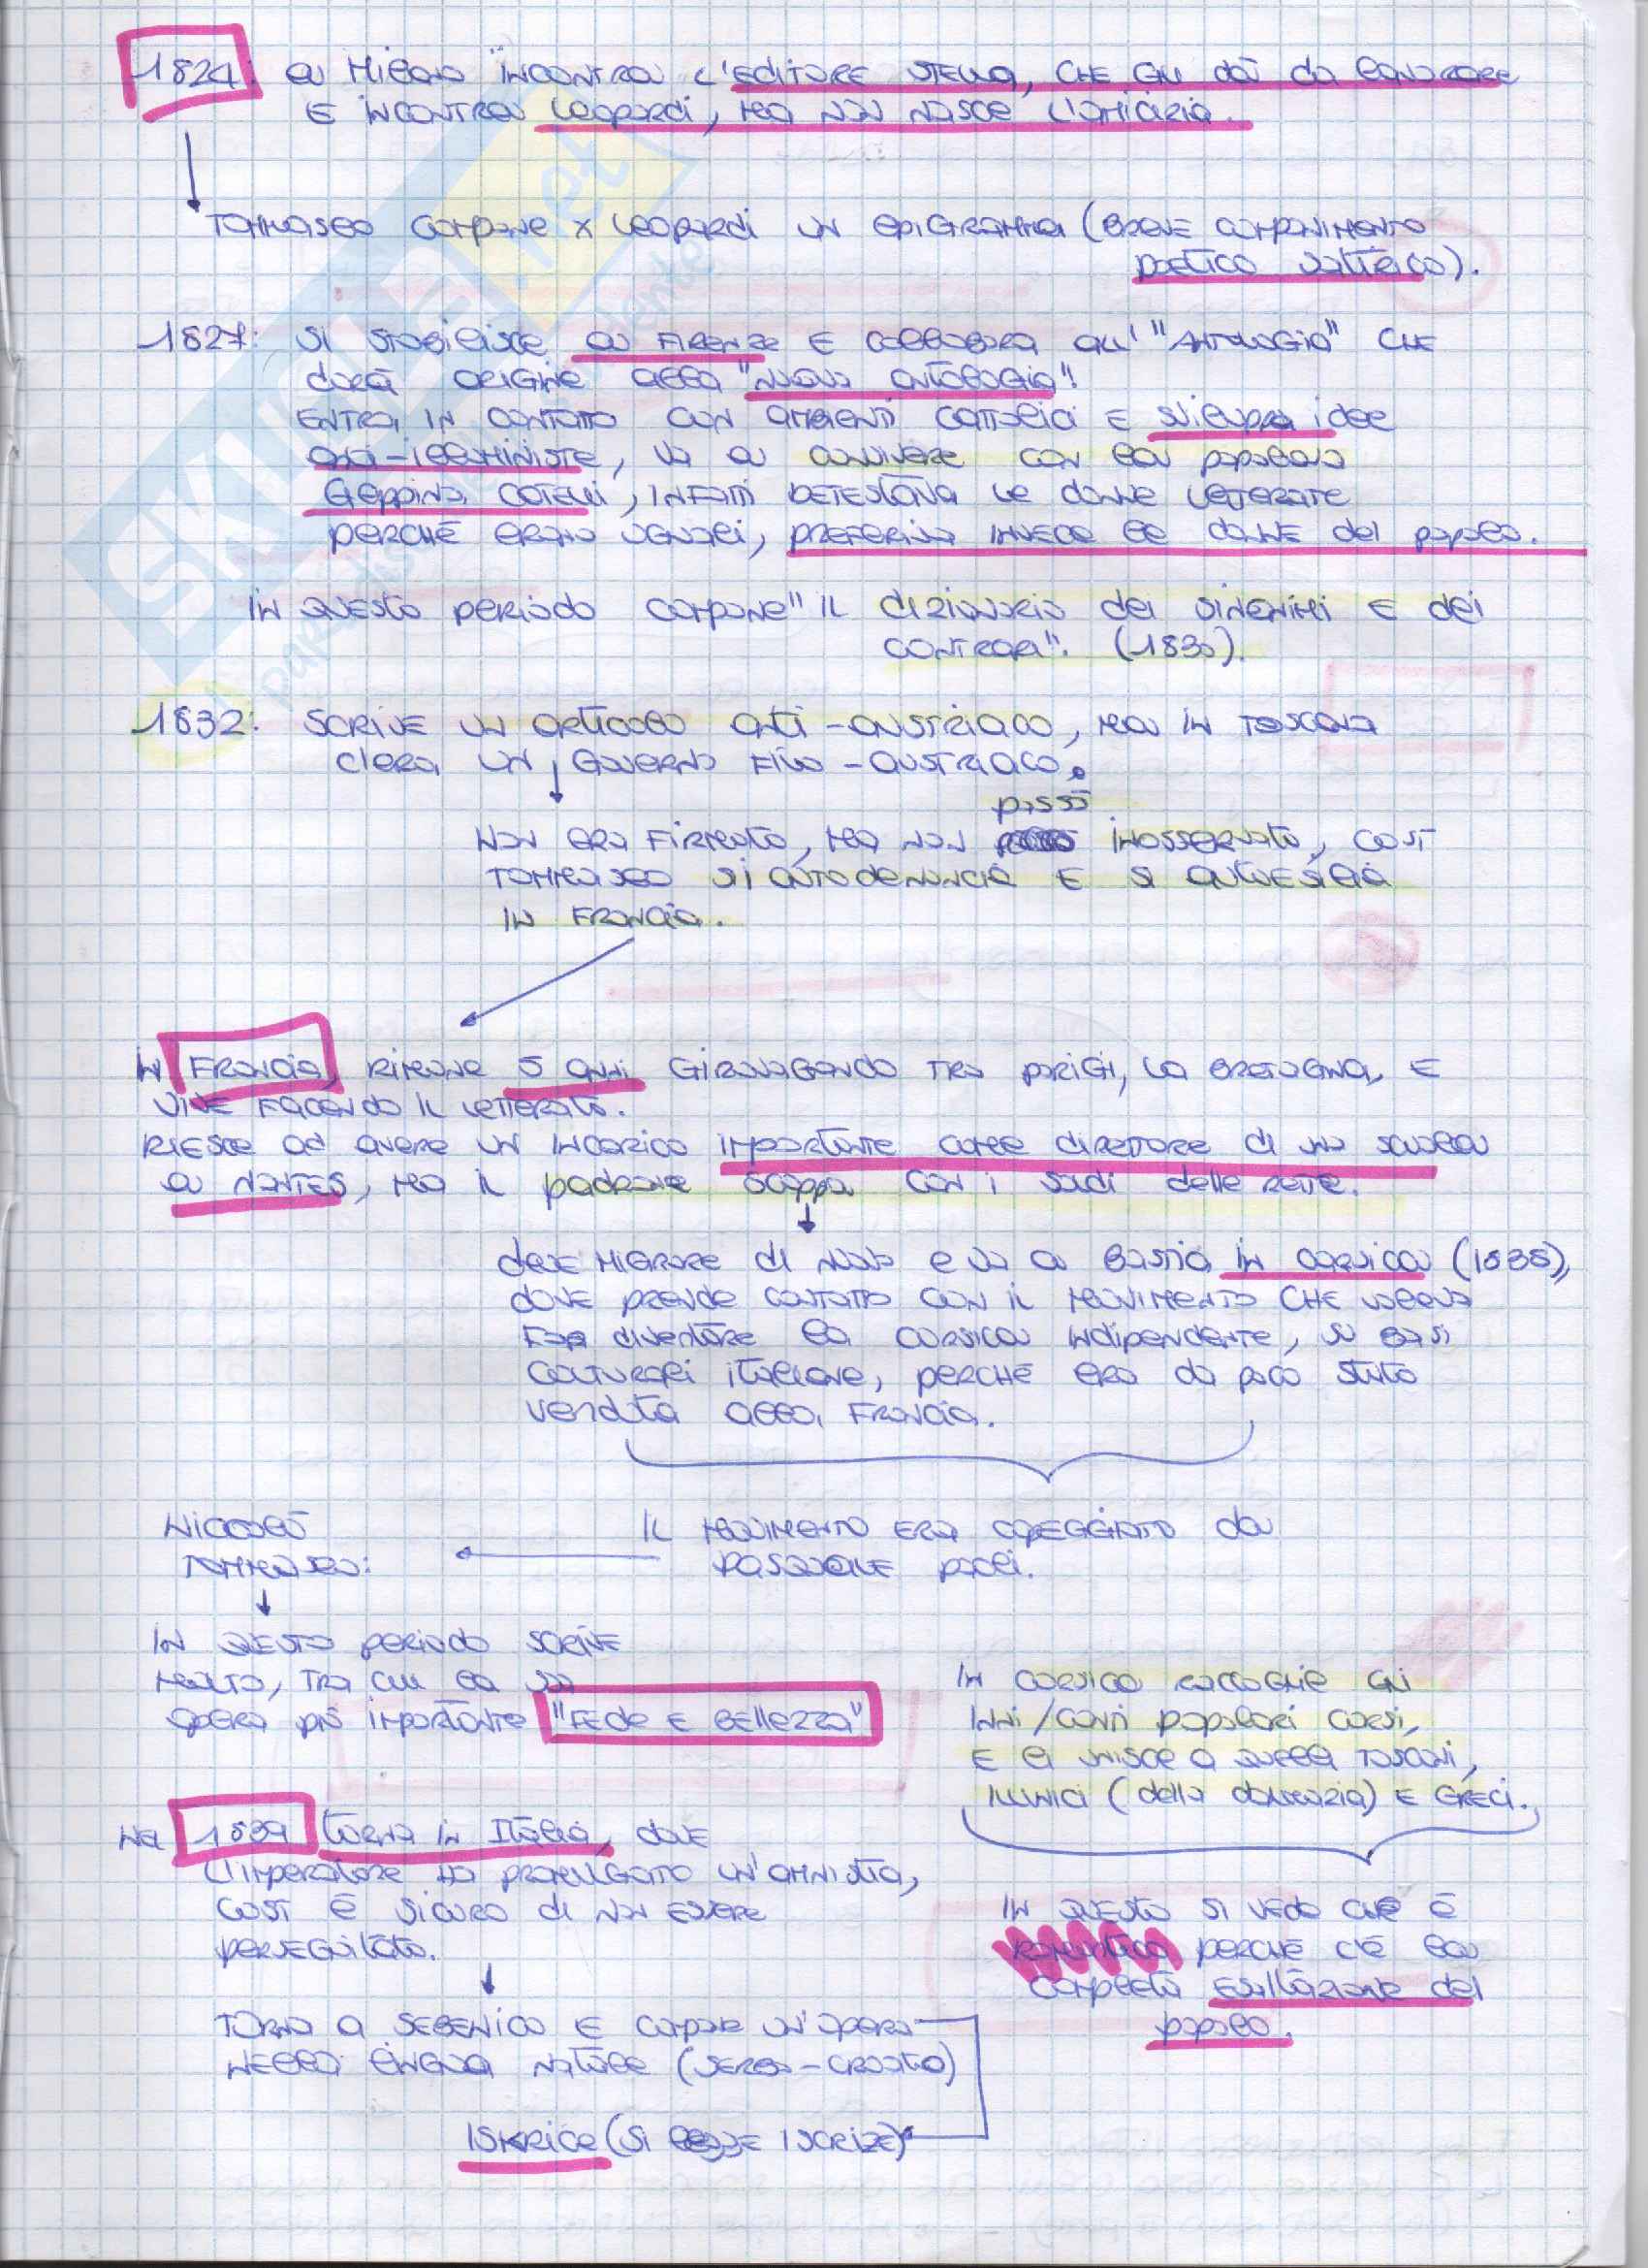 1824: a Milano incontra l'editore Stella, che gli dà da lavorare
e incontra Leopardi, ma non nasce l'amicizia.
Tommaseo compone x Leopardi un epigramma (breve componimento
poetico satirico).
1827: si stabilisce a Firenze e collabora all'"Antologia" che
darà origine alla "nuova antologia".
Entra in contatto con ambienti cattolici e sviluppa idee
anti-illuministe, va a convivere con la popolana
Geppina Catelli, infatti detestava le donne letterate
perché erano uguali, preferiva invece le donne del popolo.
In questo periodo compone "il dizionario dei sinonimi e dei
contrari". (1830).
1832: scrive un articolo anti-austriaco, ma in Toscana
c'era un governo filo-austriaco.
passò
Non era firmato, ma non inosservato, così
Tommaseo si autodenuncia e si autoesilia
in Francia.
In Francia, rimane 5 anni girovagando tra Parigi, la Bretagna, e
vive facendo il letterato.
Riesce ad avere un incarico importante come direttore di una scuola
a Nantes, ma il padrone scappa con i soldi delle rette.
deve migrare di nuovo e va a Bastia in Corsica (1838),
dove prende contatto con il movimento che voleva
far diventare la Corsica indipendente, su basi
culturali italiane, perché era da poco stata
venduta alla Francia.
Il movimento era capeggiato da
Pasquale Paoli.
Niccolò
Tommaseo:
In questo periodo scrive
molto, tra cui la sua
opera più importante "Fede e Bellezza"
In Corsica raccoglie gli
inni/canti popolari corsi,
e li unisce a quelli toscani,
illirici (della Dalmazia) e greci.
In questo si vede che è
romantico perché c'è la
completa esaltazione del
popolo.
Nel 1839 torna in Italia, dove
l'imperatore ha promulgato un'amnistia,
così è sicuro di non essere
perseguitato.
Torna a Sebenico e compone un'opera
nella lingua natale (serbo-croato)
ISKRICE (si legge ISCRIZE)
SKUOLA.net